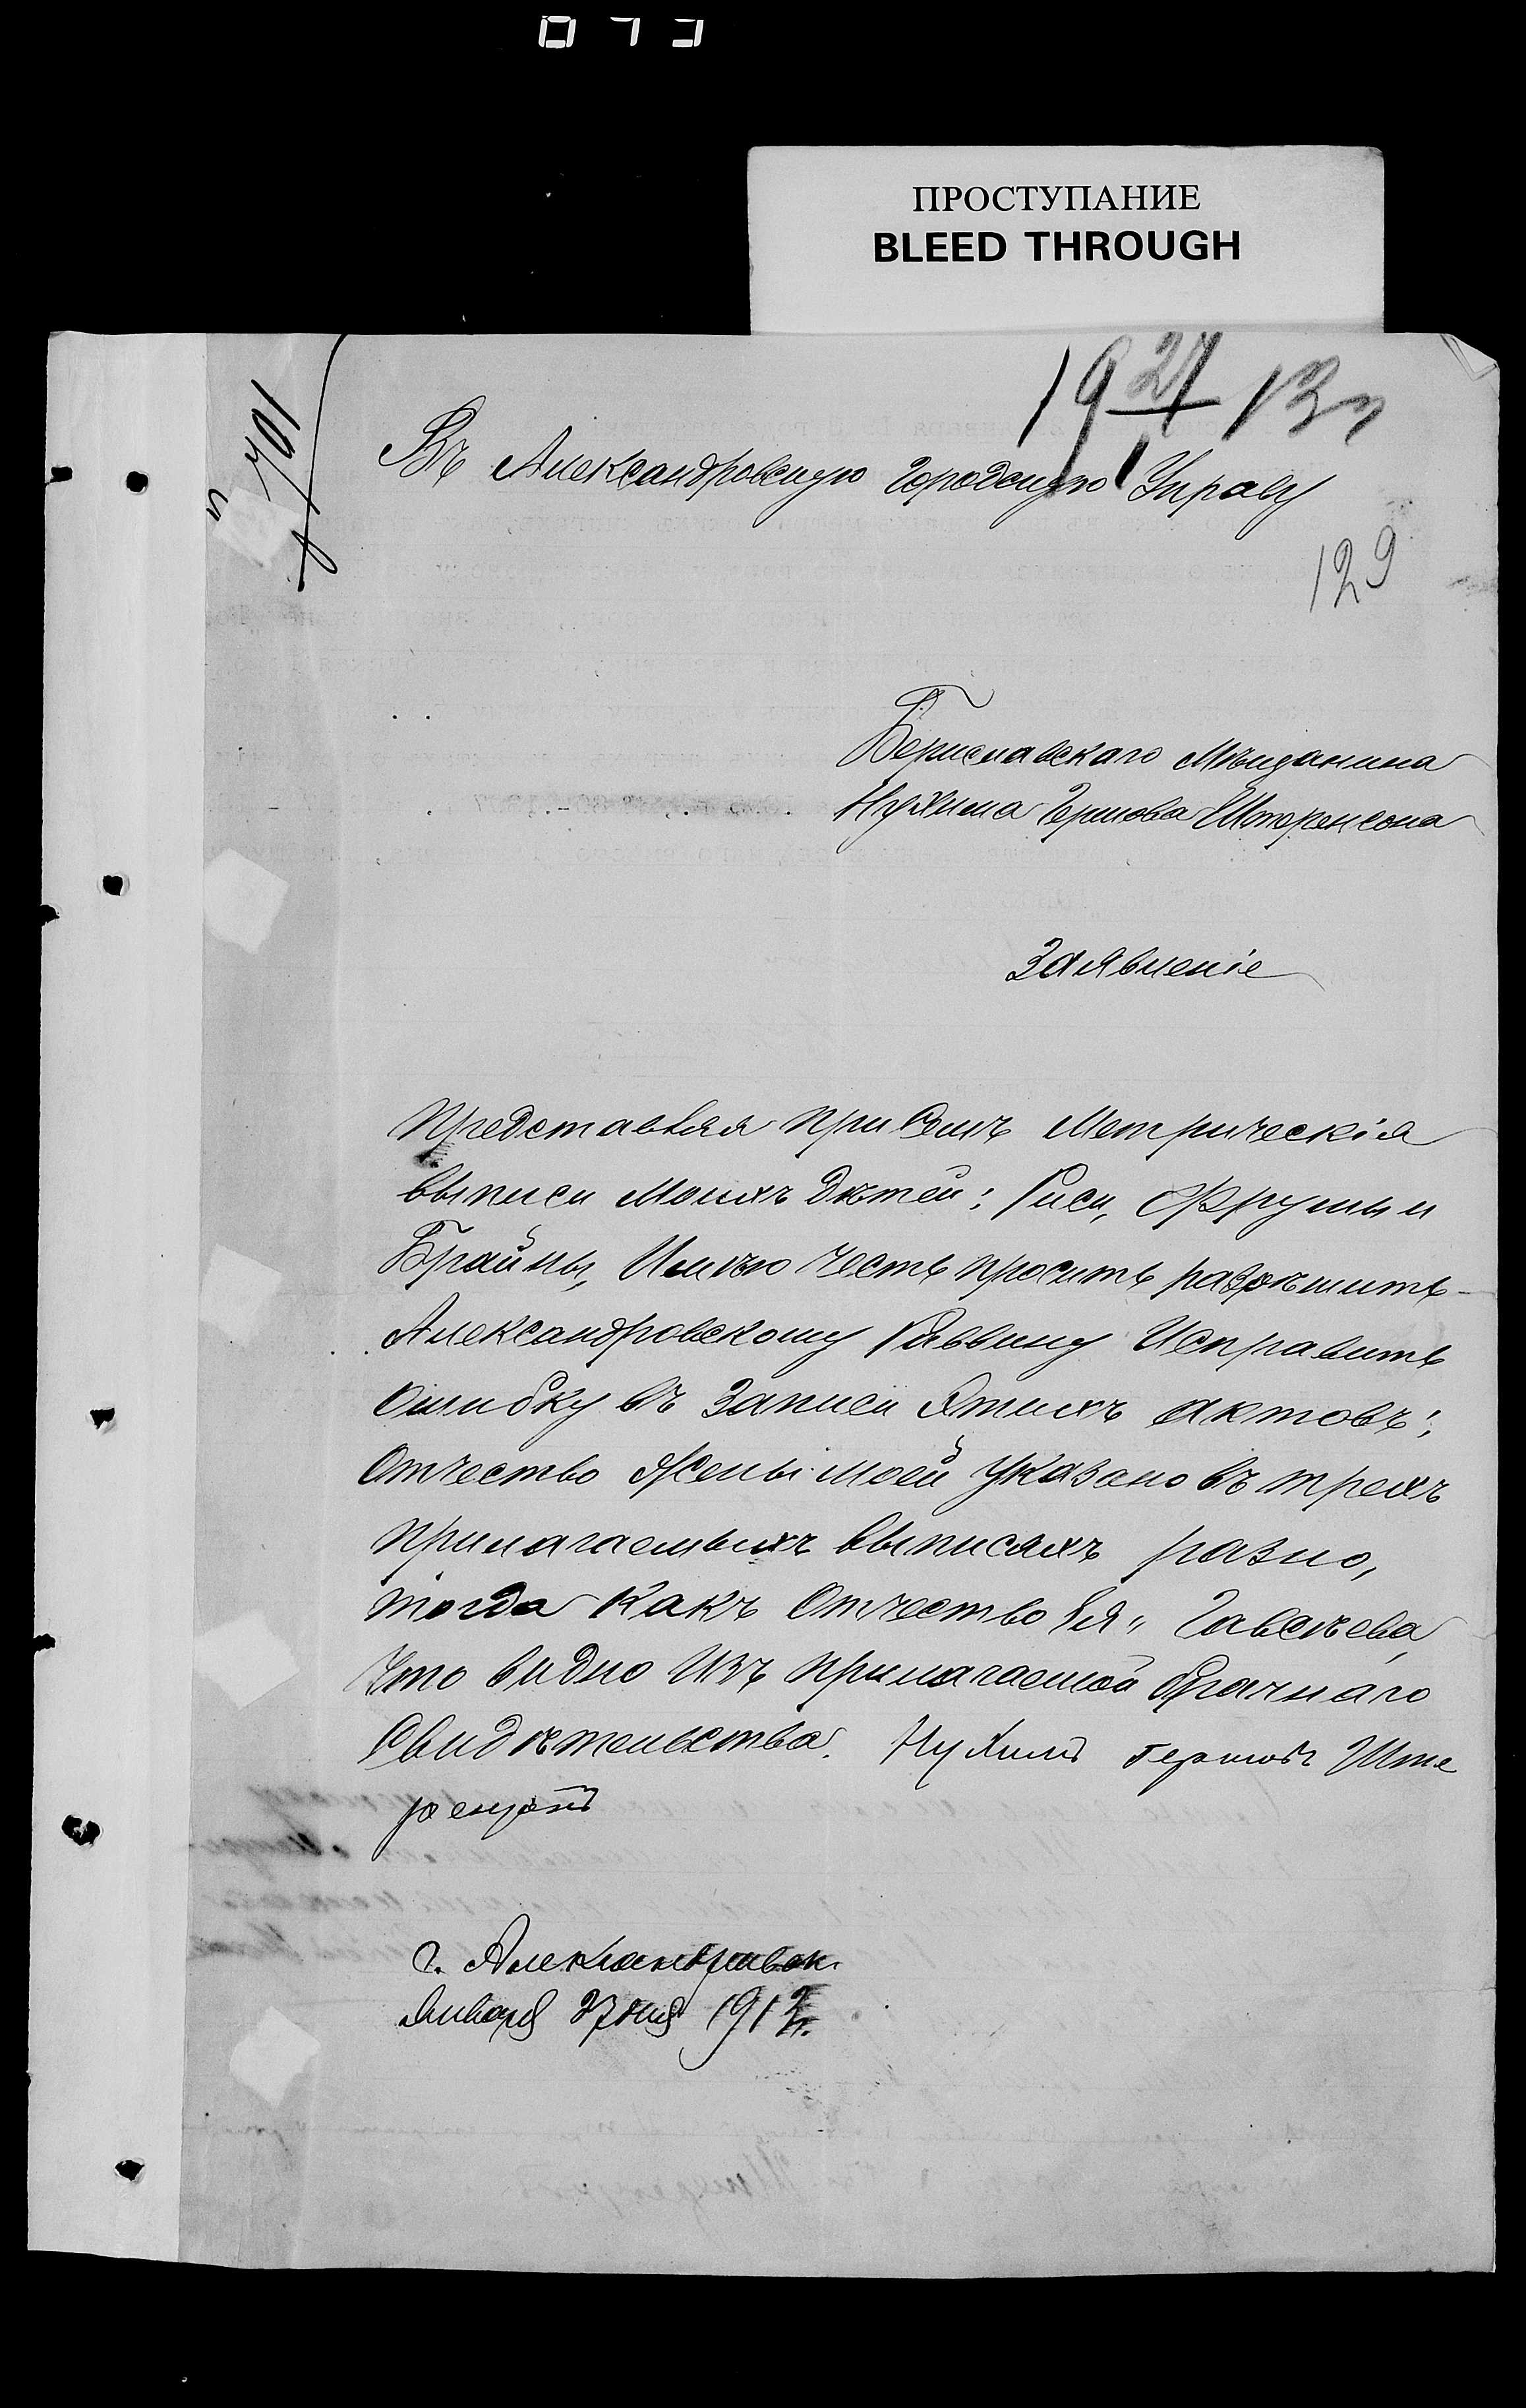 073
ПРОСТУПАНИЕ
BLEED THROUGH
19 27/1 13 г
701
Въ Александровскую Городскую Управу
129
Бериславскаго Мѣщанина
Нухима Гершова Штеренсона
Заявленіе
Представляя при семъ Метрическія
выписи Моихъ Дѣтей: Риси, Фрумы и
Брайны, Имѣю честь просить разрѣшить
Александровскому Раввину Исправить
Ошибку въ Записи Этихъ актовъ:
Отчество Жены моей Указано въ трехъ
прилагаемыхъ выписяхъ разно,
тогда какъ Отчество Ея „Гавсѣева
Что видно Изъ прилагаемой брачнаго
Свидѣтельства. Нухимъ Гершовъ Ште
ренсонъ
г. Александровск
Января 27 дня 1913 г.